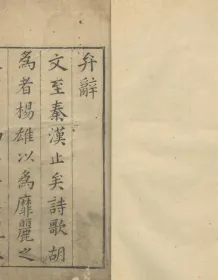 弁辭
文至秦漢止矣詩歌胡
為者楊雄以為靡麗之